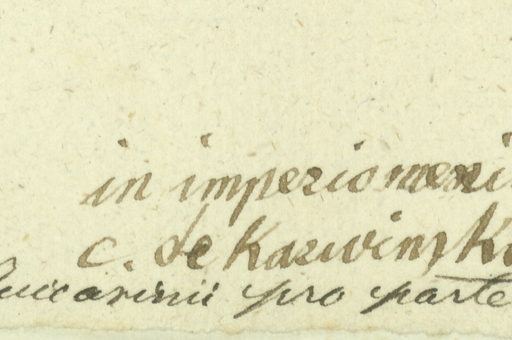 in imperio mexi
c. de Karwinski
uccarinii pro parte